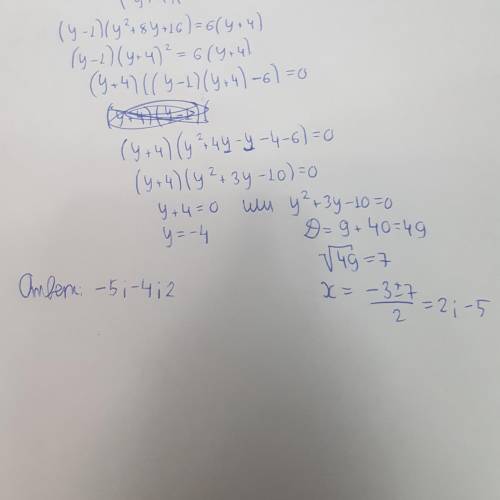 (y-1)(y²+8y+16)=6(y+4)
(y-1)(y+4)²=6(y+4)
(y+4)((y-1)(y+4)-6)=0
(y+4)(y²+4y-y-4-6)=0
(y+4)(y²+3y-10)=0
y+4=0 или y²+3y-10=0
y=-4 D=9+40=49
√49=7
Ответ: -5;-4;2 x=(-3±7)/2=2;-5